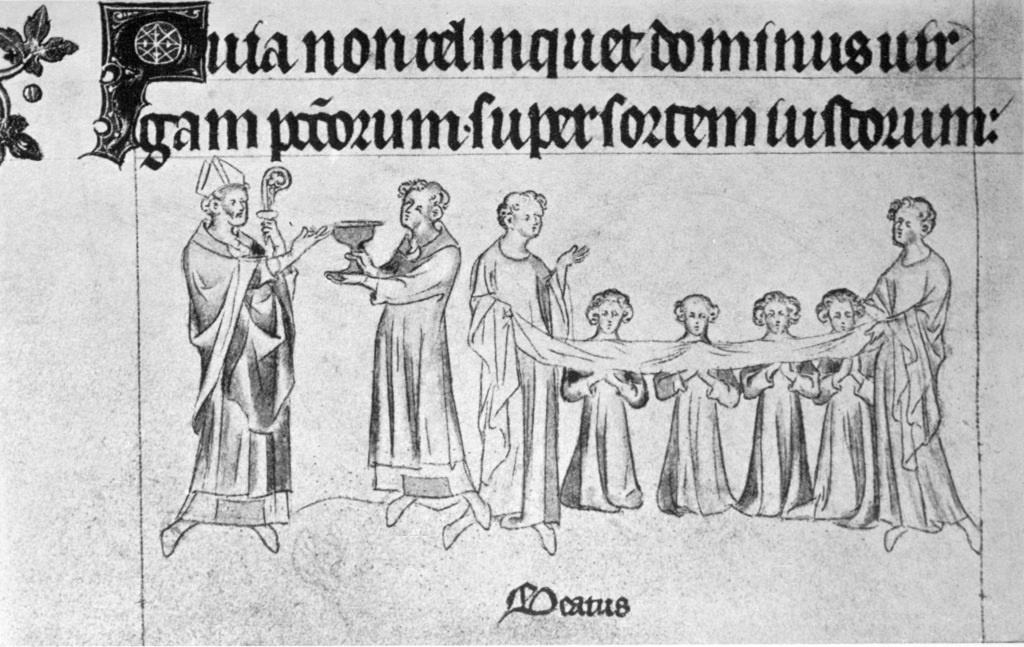 Quia non relinquet dominus uir
gam pct̄orum. super sortem iustorum:
Beatus